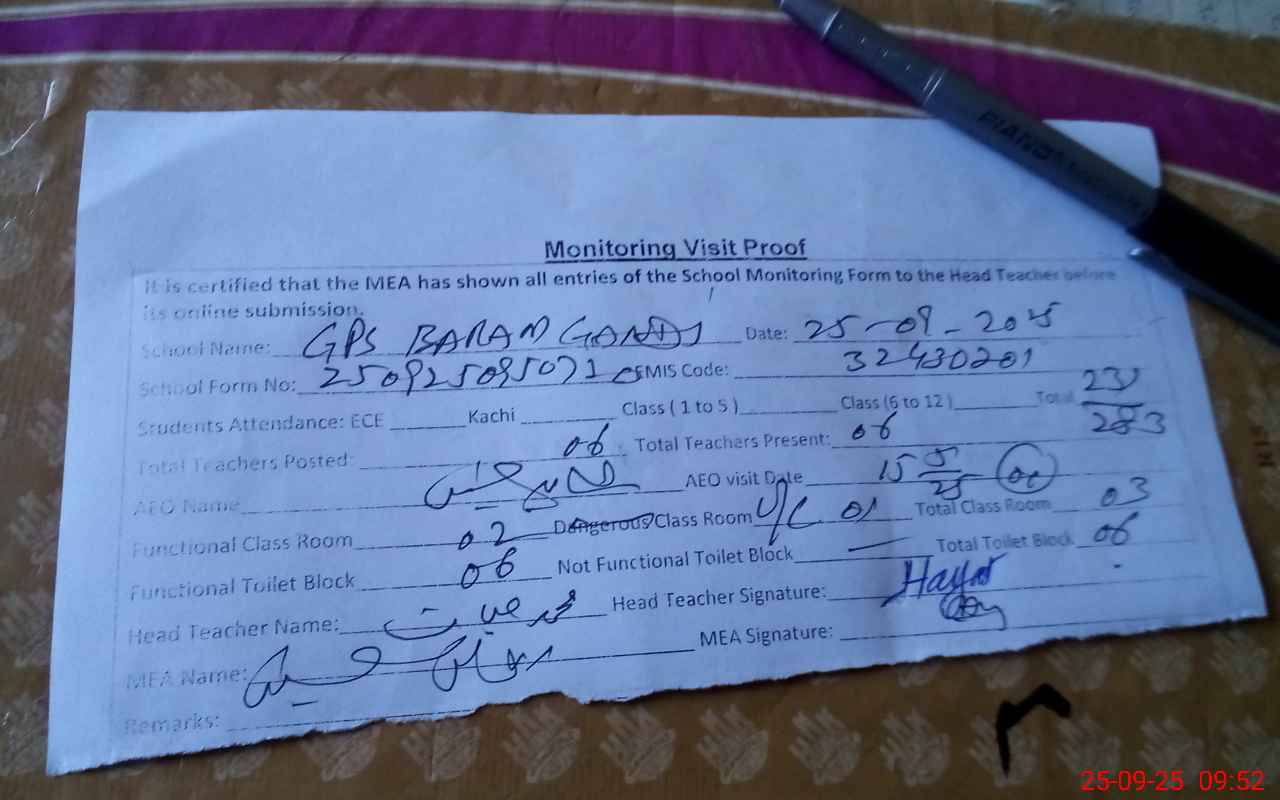 PIANO
Monitoring Visit Proof
It is certified that the MEA has shown all entries of the School Monitoring Form to the Head Teacher before
its online submission.
School Name: GPS BARAM Date: 25-09-2025
School Form No: 250925095071 EMIS Code: 32430201
Students Attendance: ECE Kachi Class ( 1 to 5 ) Class (6 to 12 ) Total 231/283
Total Teachers Posted: 06 Total Teachers Present: 06
AEO Name AEO visit Date 15 5/25
Functional Class Room 02 Dangerous Class Room U/C 01 Total Class Room 03
Functional Toilet Block 06 Not Functional Toilet Block — Total Toilet Block 06
Head Teacher Name: Head Teacher Signature: Hayat
MEA Name: MEA Signature:
Remarks:
25-09-25 09:52